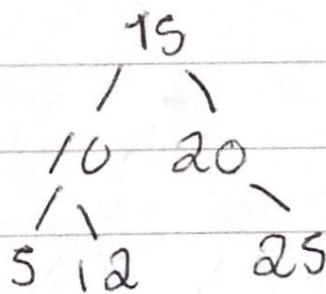 15
10 20
5 12 25